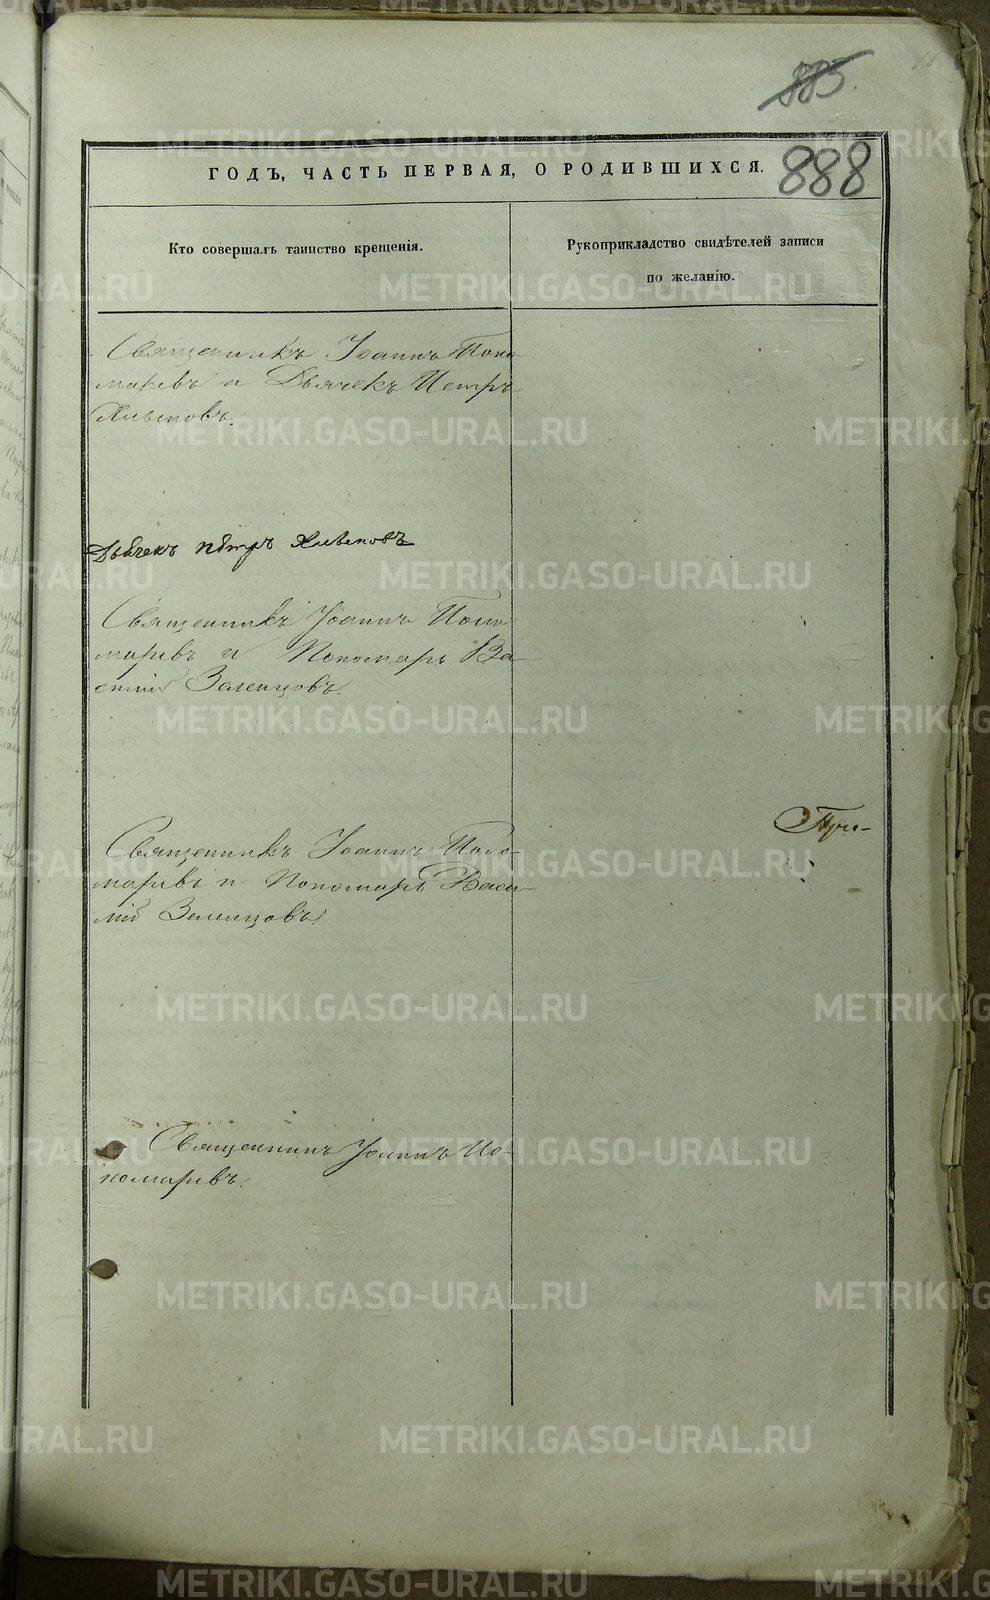 885
888
ГОДЪ, ЧАСТЬ ПЕРВАЯ, О РОДИВШИХСЯ.
Кто совершалъ таинство крещенія.
Рукоприкладство свидѣтелей записи
по желанію.
Священникъ Іоаннъ Поно-
маревъ и Дьячекъ Петръ
Хлыновъ.
Дьячекъ петръ
Священникъ Іоаннъ Поно-
маревъ и Пономарь Ва-
силій Зеленцовъ.
Священникъ Іоаннъ Поно-
маревъ и Пономарь Васи-
лій Зеленцовъ.
При-
Священникъ Іоаннъ По-
номаревъ.
METRIKI.GASO-URAL.RU